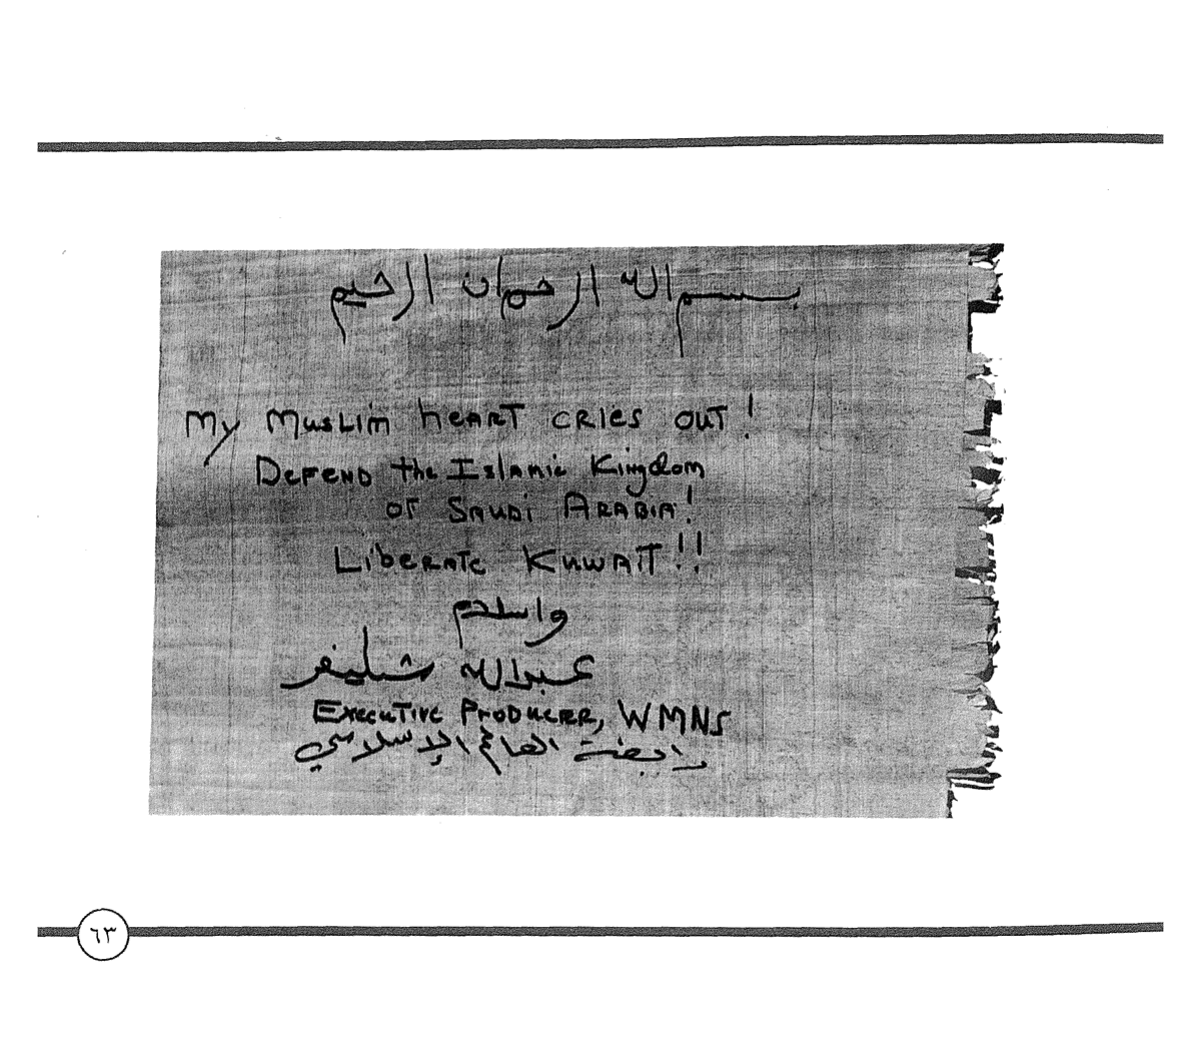 بسم الله الرحمان الرحيم
My Muslim heart cries out!
Defend the Islamic Kingdom
of Saudi Arabia!
Liberate Kuwait!!
واسلام
عبدالله شليفر
Executive Producer, WMNS
رابطة العالم الإسلامي
٦٣